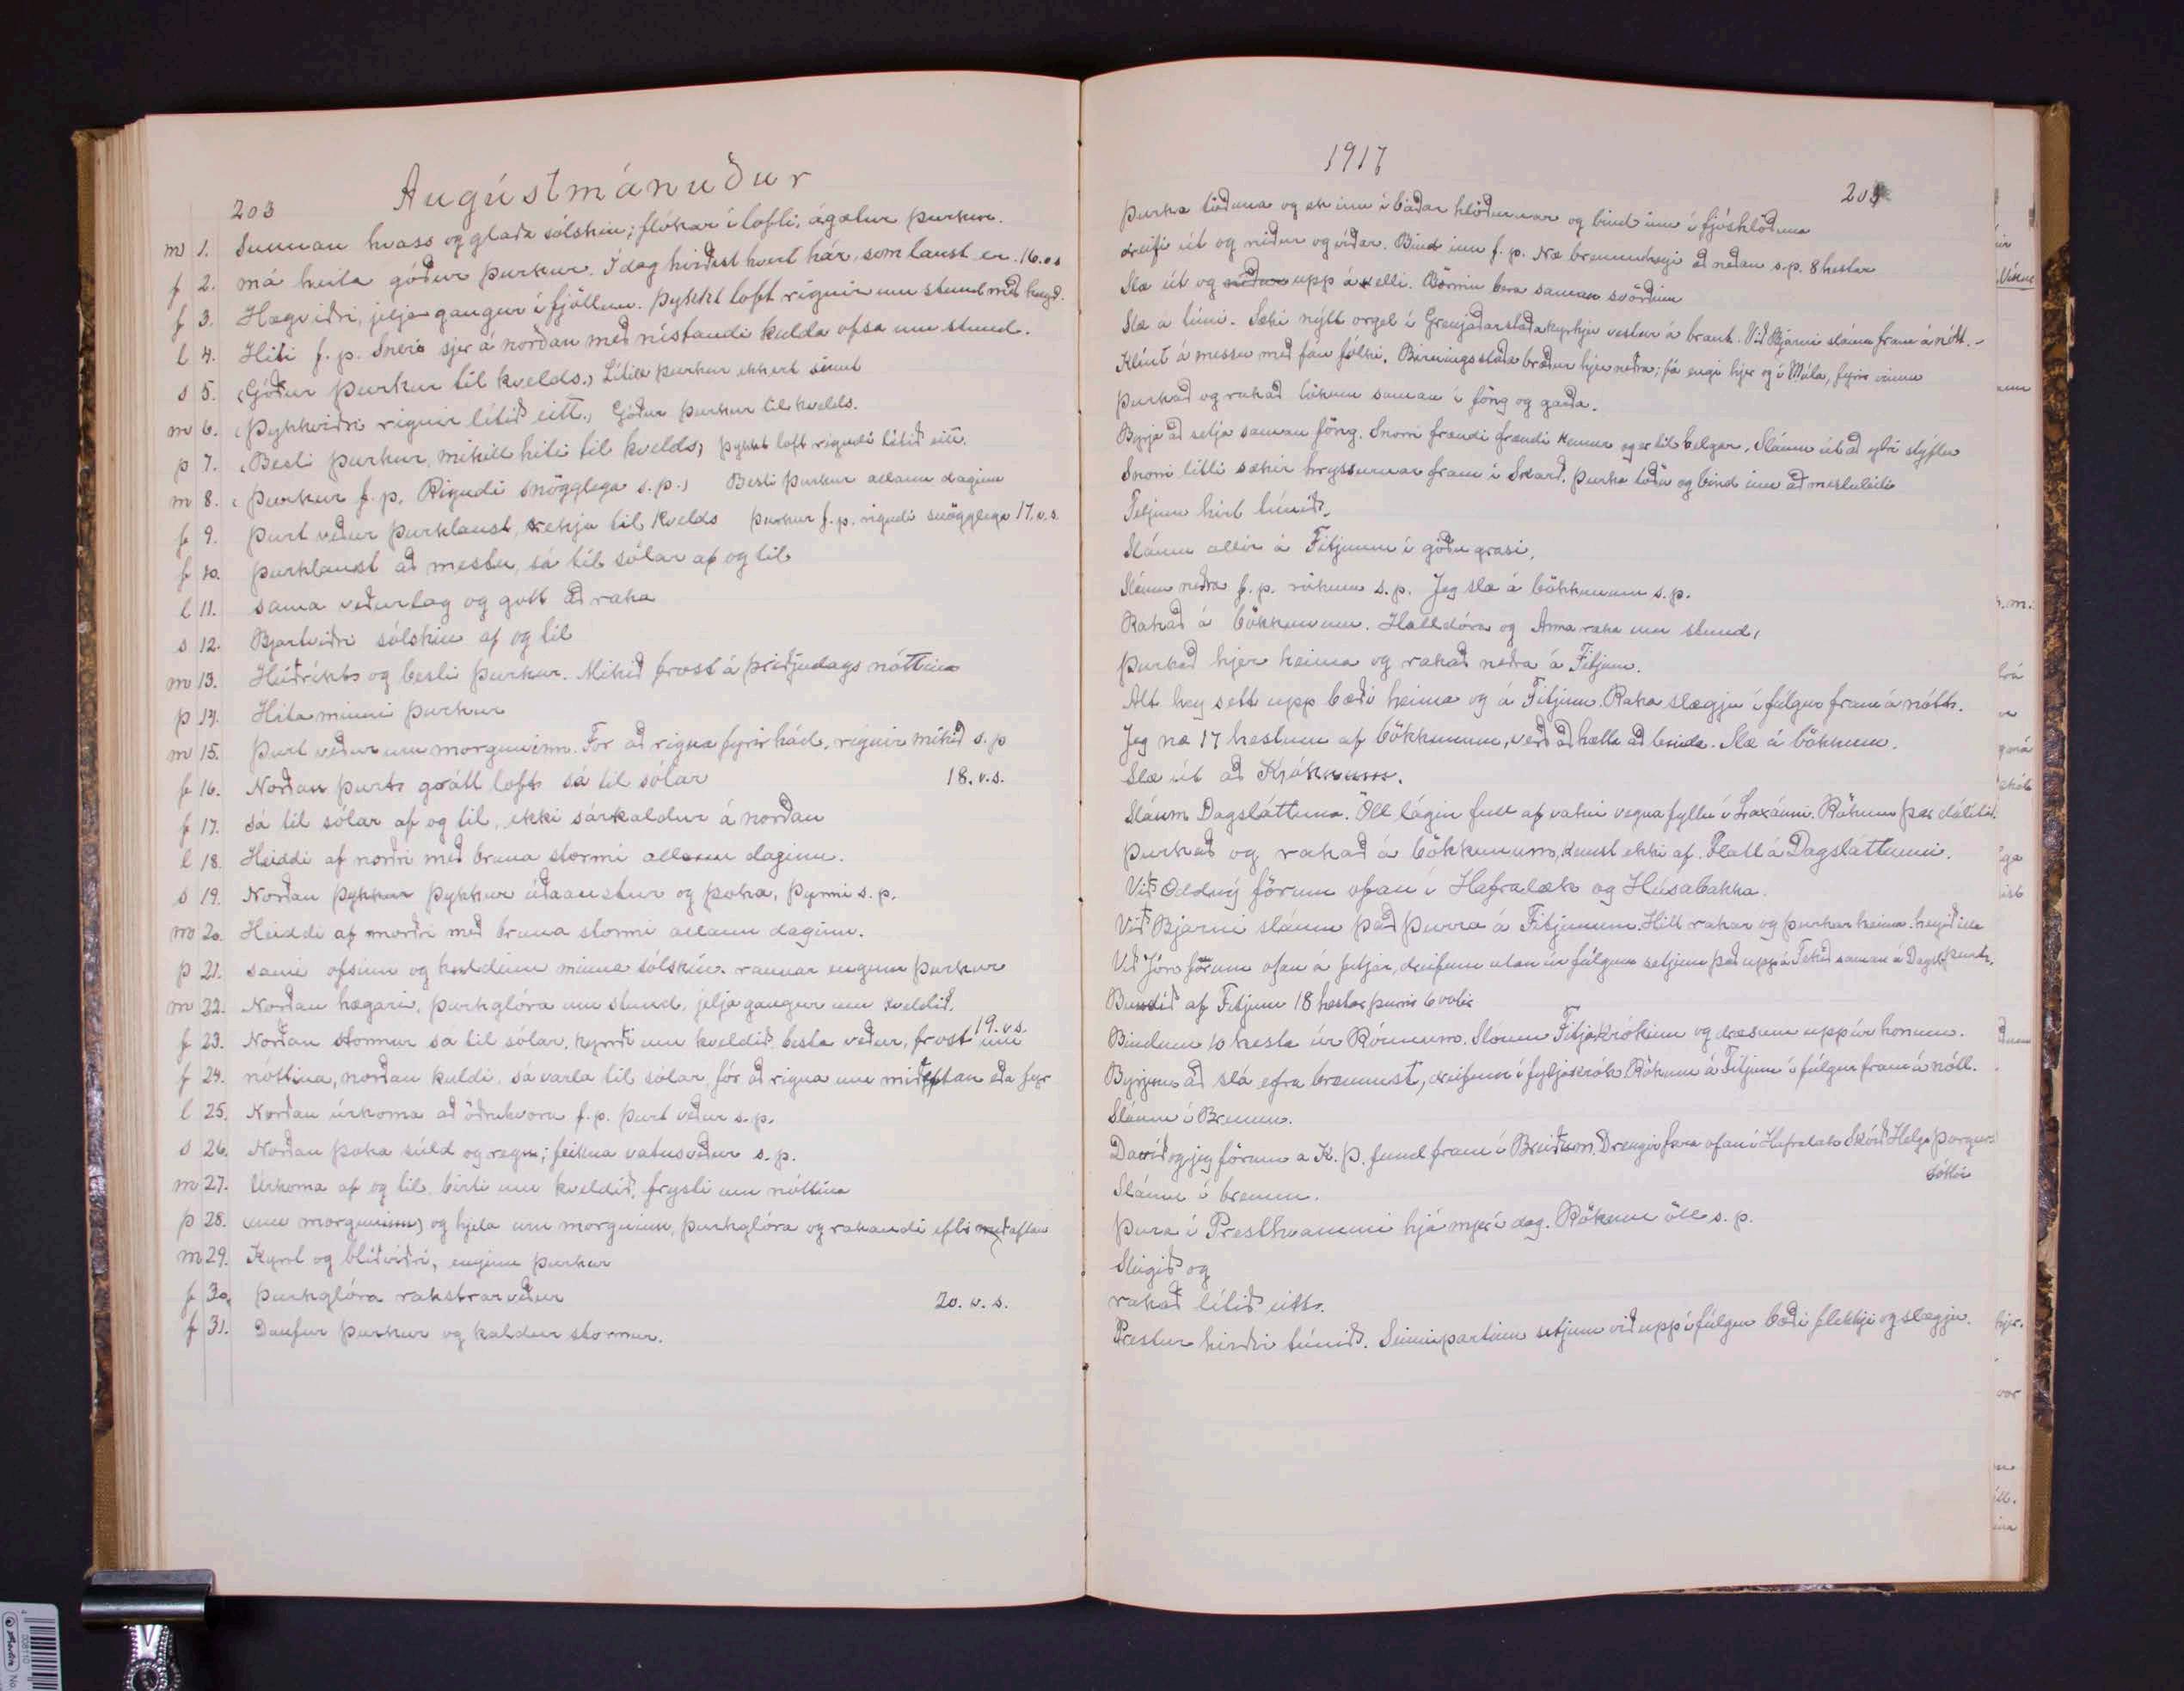 Augústmánuður
203
m 1. Sunnan hvass og glaða sólskin; flókar í lofti, ágætur þurkur.
f 2. má heita góður þurkur. Í dag hirðist hvert hár, sem laust er. 16.v.s
f 3. Hægviðri, jeljagangur í fjöllum. Þykkt loft rignir um stund með hægð.
l 4. Hiti f.p. Snéri sjer á norðan með nístandi kulda ofsa um stund.
s 5. (Góður þurkur til kvelds.) Lítill þurkur ekkert hirt
m 6. (Þykkviðri rignir lítið eitt.) Góður þurkur til kvelds.
þ 7. (Besti þurkur, mikill hiti til kvelds) þykkt loft rigndi lítið eitt.
m 8. (Þurkur f.p. Rigndi snögglega s.p.) Besti þurkur allann daginn
f 9. Þurt veður þurklaust, rekja til kvelds þurkur f.p. rigndi snögglega 17.v.s.
f 10. Þurklaust að mestu, sá til sólar af og til
l 11. sama veðurlag og gott að raka
s 12. Bjartviðri sólskin af og til
m 13. Heiðríkt og besti þurkur. Mikið frost á þriðjudags nóttina
þ 14. Hita minni þurkur
m 15. Þurt veður um morguninn. Fór að rigna fyrir hád. rignir mikið s.p
f 16. Norðan þurt grátt loft sá til sólar 18.v.s.
f 17. Sá til sólar af og til, ekki sárkaldur á norðan
l 18. Heiddi af norðri með bruna stormi allann daginn.
s 19. Norðan þykkur þykkur úðaaustur og þoka, þyrmi s.p.
m 20. Heiddi af norðri með bruna stormi allann daginn.
þ 21. sami ofsinn og kuldinn minna sólskin. raunar enginn þurkur
m 22. Norðan hægari, þurkglóra um stund, jeljagangur um kveldið.
19.v.s.
f 23. Norðan stormur sá til sólar, kyrrði um kveldið besta veður, frost um
f 24. nóttina, norðan kuldi, sá varla til sólar, fór að rigna um miðaftan eða fyr
l 25. Norðan úrkoma að öðruhvoru f.p. Þurt veður s.p.
s 26. Norðan þoka súld og regn; feikna vatnsveður s.p.
m 27. Úrkoma af og til, birti um kveldið, frysti um nóttina
þ 28. um morguninn) og hjela um morguninn, þurkglóra og rakandi eftir miðaftan
m 29. Kyrrt og blíðviðri, enginn þurkur
f 30. Þurkglóra rakstrarveður 20.v.s.
f 31. Daufur þurkur og kaldur stormur.
1917
Þurka töðuna og ek inn í báðar hlöðurnar og bind inn í fjóshlöðuna
dreifi út og niður og víðar. Bind inn f.p. Næ brennuheyi að neðan s.p. 8 hestar
Slæ út og niður upp á velli. Börnin bera saman svörðinn
Slæ á túni. Sæki nýtt orgel í Grenjaðarstaðakyrkju vestur á braut. Við Bjarni sláum fram á nótt.
Klént á messu með fáu fólki. Birningsstaða bræður hjer neðra; fá engi hjer og í Múla, fyrir vinnu
Þurkað og rakað tökum saman í föng og garða.
Byrja að setja saman föng. Snorri frændi frændi kemur og er til helgar. Sláum út að ytri stýflu
Snorri litli sækir hryssurnar fram í Skarð. Þurka töðu og bind inn að mestuleiti
Teljum hirt túnið.
Sláum allir á Fitjunum í góðu grasi.
Sláum neðra f.p. rökum s.p. Jeg slæ á bökkunum s.p.
Rakað á bökkunum. Halldóra og Anna raka um stund,
Þurkað hjer heima og rakað neðra á Fitjum.
Alt hey sett upp bæði heima og á Fitjum. Raka slægju í fúlgur fram á nótt.
Jeg næ 17 hestum af bökkunum, verð að hætta að binda. Slæ á bökkum.
Slæ út að Krókum.
Sláum Dagsláttuna. Öll lágin full af vatni vegna fyllu í Laxánni. Rökum þar dálítið.
Þurkað og rakað á bökkunum, kemst ekki af. Flatt á Dagsláttunni.
Við Oddný förum ofan í Hafralæk og Húsabakka.
Við Bjarni sláum það þurra á Fitjunum. Hitt rakar og þurkar heima. heyið illa
Við Jóri förum ofan á fitjar, dreifum utan úr fúlgum setjum það upp á Tekið saman á Dagsl. þurt.
Bundið af Fitjum 18 hestar þurrir 6 votir
Bindum 10 hesta úr Rónum. Sláum Fitjakrókinn og dræsum upp úr honum.
Byrjum að slá efra brennust, dreifum í fitjakrók Rökum á Fitjum í fúlgur fram á nótt.
Sláum í Brennu.
Davíð og jeg förum á K.Þ. fund fram í Breiðumýri. Drengir fara ofan í Hafralæk Skírð Helga Þorgríms
dóttir
Sláum í brennu.
Þura í Presthvammi hjá mjer í dag. Rökum öll s.p.
Slegið og
rakað lítið eitt.
Prestur hirðir túnið. Seinnipartinn setjum við upp í fúlgur bæði flekki og slægju.